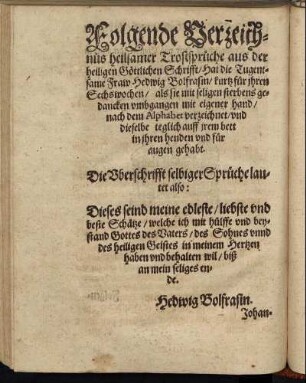 Folgende Verzeich-
nüs heilsamer Trostsprüche aus der
heiligen Göttlichen Schrifft / Hat die Tugent-
same Fraw Hedwig Bolfrasin / kurtz für jhren
Sechswochen / als sie mit seligen sterbens ge-
dancken vmbgangen mit eigener hand /
nach dem Alphabet verzeichnet / vnd
dieselbe teglich auff jrem bett
in jhren henden vnd für
augen gehabt.
Die Vberschrifft selbiger Sprüche lau-
tet also:
Dieses seind meine edleste / liebste vnd
beste Schätze / welche ich mit hülffe vnd bey-
stand Gottes des Vaters / des Sohnes vnnd
des heiligen Geistes in meinem Hertzen
haben vnd behalten wil / biß
an mein seliges en-
de.
Hedwig Bolfrasin.
Johan-